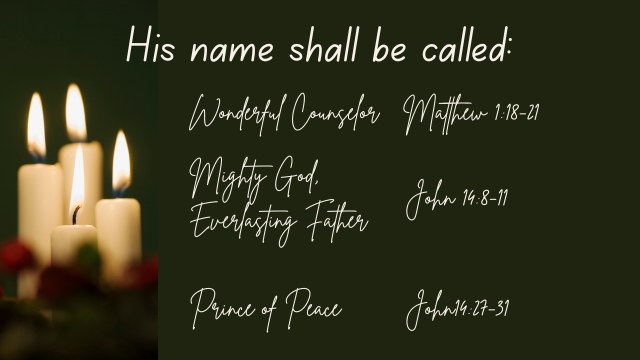 His name shall be called:
Wonderful Counselor Matthew 1:18-21
Mighty God,
Everlasting Father
John 14:8-11
Prince of Peace John14:27-31